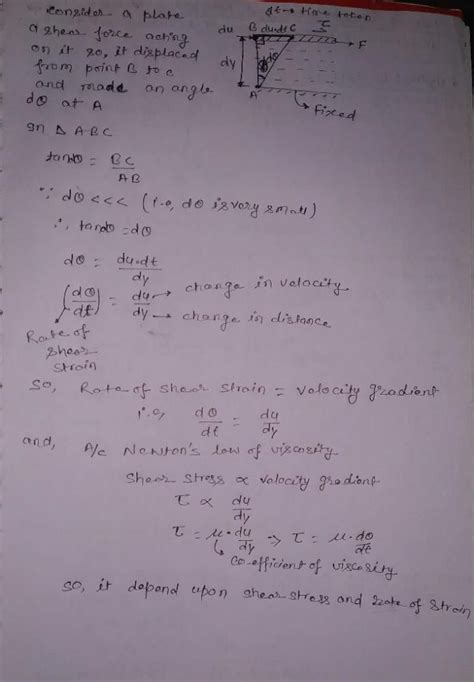 Consider a plate
a shear force acting
on it so, it displaced
from point B to C
and made an angle
dθ at A
dt → time taken
du B du·dt C τ F
dy dθ
A fixed
In Δ ABC
tandθ = BC/AB
∵ dθ <<< (i.e, dθ is very small)
∴ tandθ = dθ
dθ = du·dt/dy
(dθ/dt) = du/dy → change in velocity
→ change in distance
Rate of
shear
strain
So, Rate of shear strain = velocity gradient
i.e, dθ/dt = du/dy
and, A/c Newton's law of viscosity
Shear stress ∝ velocity gradient
τ ∝ du/dy
τ = μ·du/dy → τ = μ·dθ/dt
Co-efficient of viscosity
So, it depend upon shear stress and rate of strain